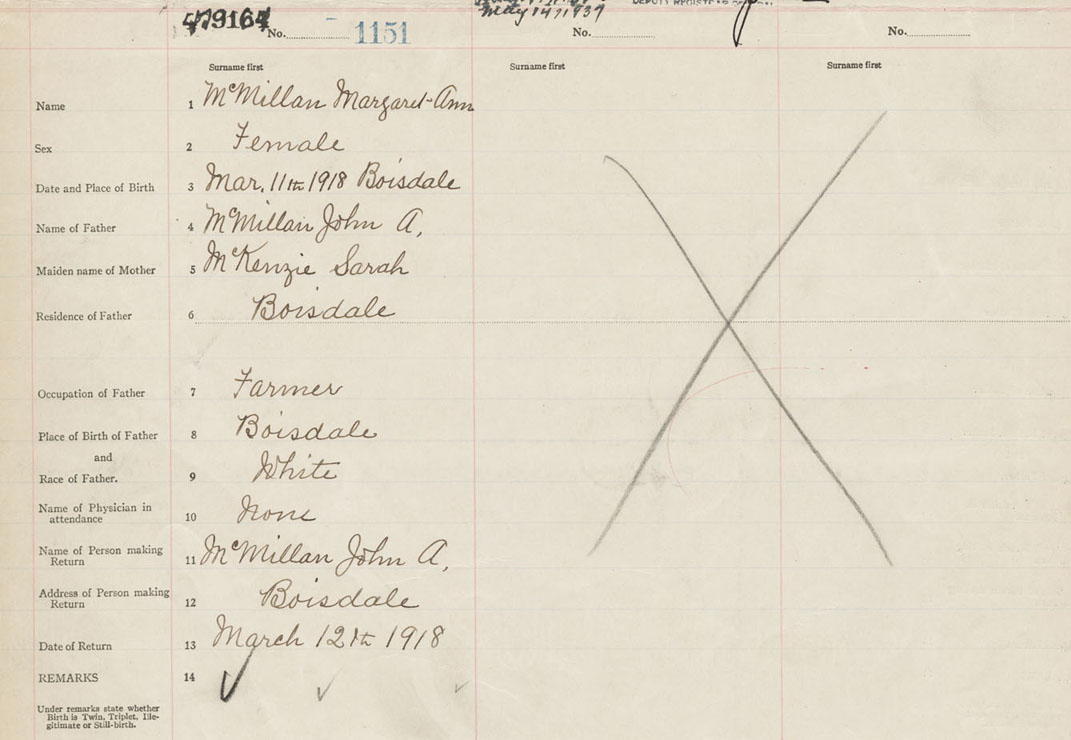 479164 No. 1151 May 14, 1937 No. No.
Surname first Surname first Surname first
Name 1 McMillan Margaret-Ann
Sex 2 Female
Date and Place of Birth 3 Mar. 11th 1918 Boisdale
Name of Father 4 McMillan John A,
Maiden name of Mother 5 McKenzie Sarah
Residence of Father 6 Boisdale
Occupation of Father 7 Farmer
Place of Birth of Father 8 Boisdale
and
Race of Father. 9 White
Name of Physician in
attendance 10 None
Name of Person making
Return 11 McMillan John A,
Address of Person making
Return 12 Boisdale
Date of Return 13 March 12th 1918
REMARKS 14
Under remarks state whether
Birth is Twin, Triplet, Ille-
gitimate or Still-birth.